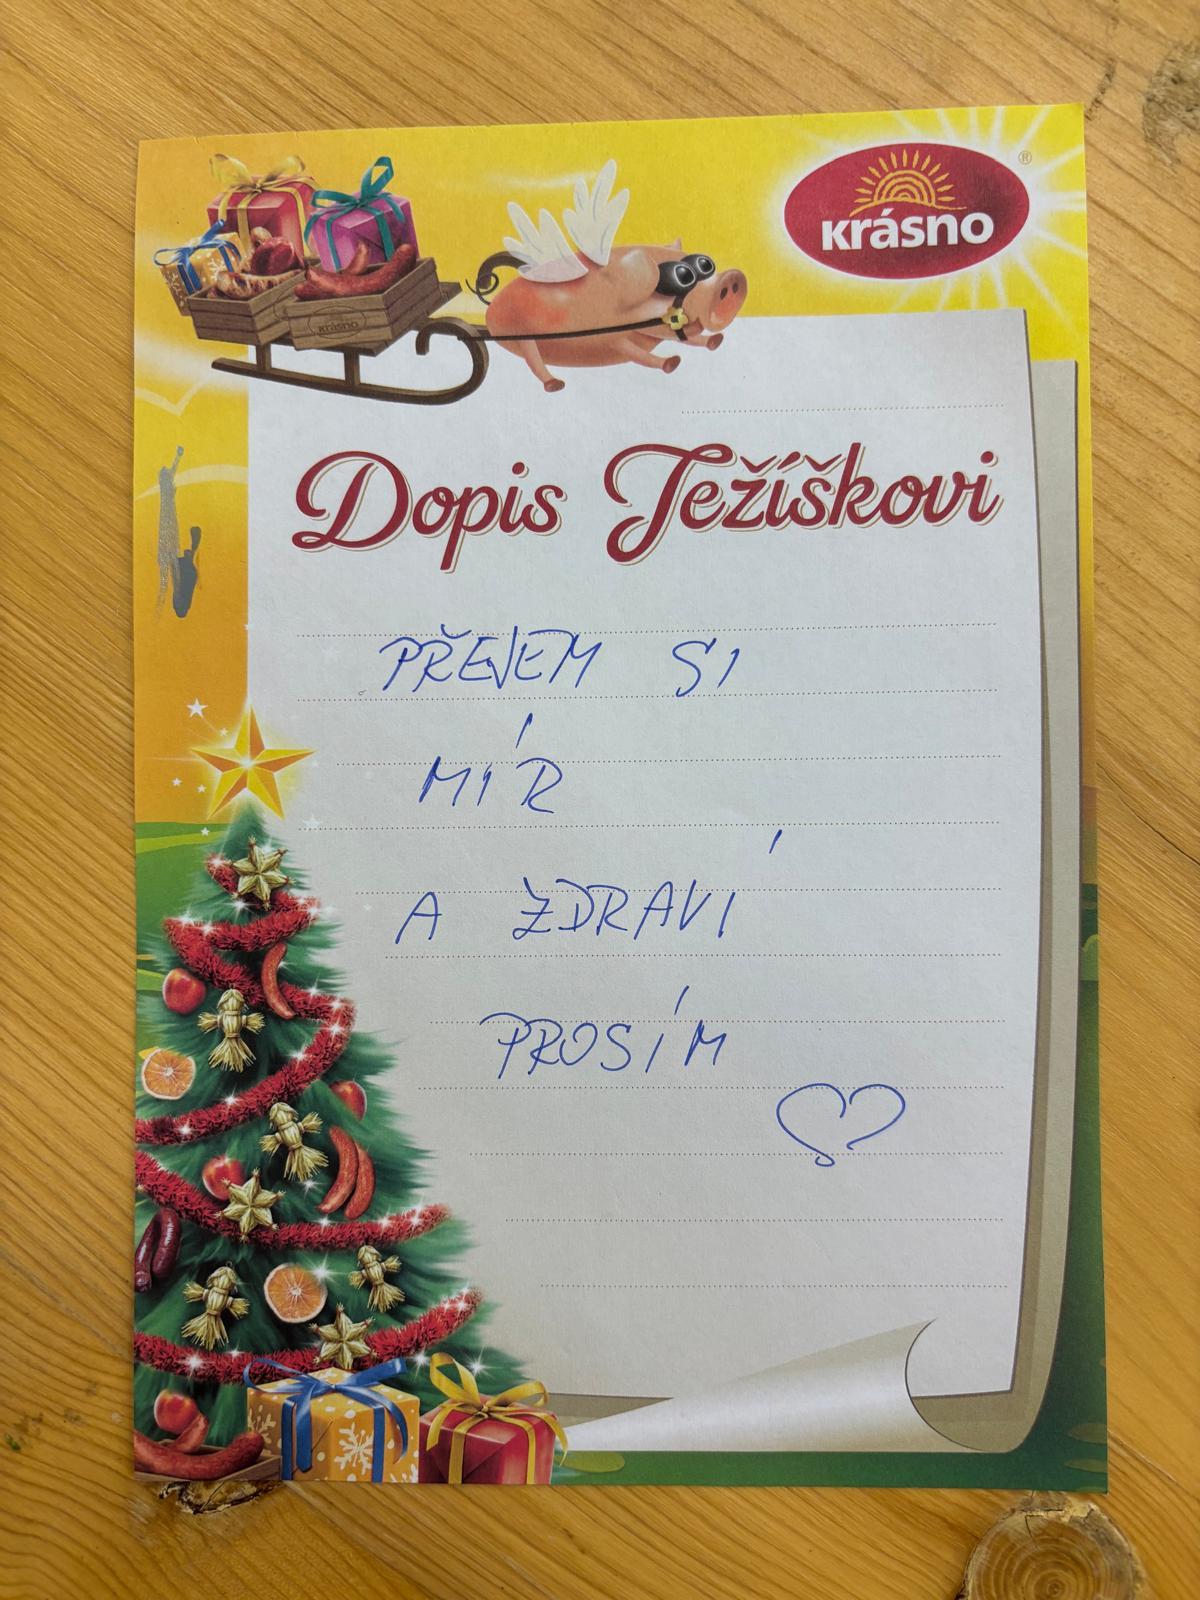 krásno ®
krásno
Dopis Ježíškovi
PŘEJEM SI
MÍR
A ZDRAVÍ
PROSÍM